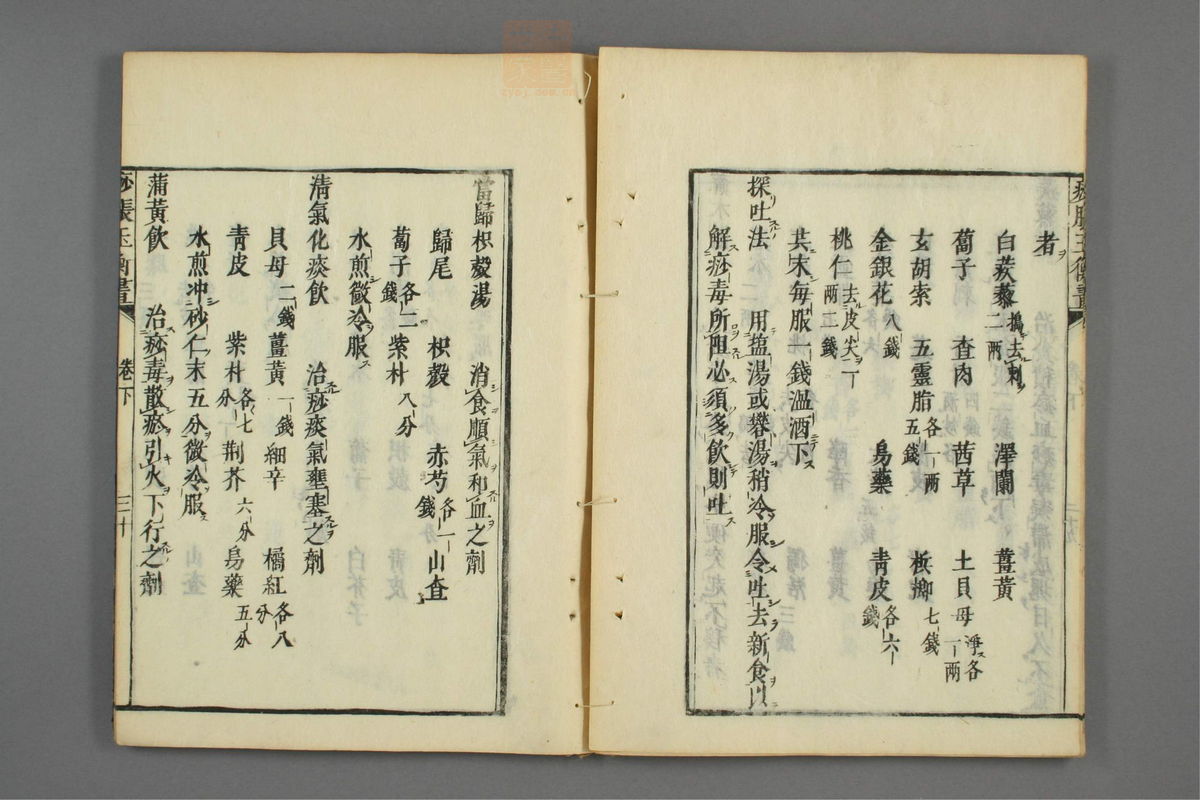 痧脹玉衡書
者
白蒺藜 搗去刺二兩 澤蘭 薑黃
蔔子 查肉 茜草 土貝母 淨各一兩
玄胡索 五靈脂 各一兩五錢 檳榔 七錢
金銀花 八錢 烏藥 青皮 各六錢
桃仁 去皮尖一兩二錢
共末每服一錢溫酒下
探吐法 用塩湯或礬湯稍冷服令吐去新食以
解痧毒所阻必須多飲則吐
當歸枳殼湯 消食順氣和血之劑
歸尾 枳殼 赤芍 各一錢 山查
蔔子 各二錢 紫朴 八分
水煎微冷服
清氣化痰飲 治痧痰氣壅塞之劑
貝母 二錢 薑黃 一錢 細辛 橘紅 各八分
青皮 紫朴 各七分 荆芥 六分 烏藥 五分
水煎冲砂仁末五分微冷服
蒲黃飲 治痧毒散瘀引火下行之劑
痧脹玉衡書 卷下 三十